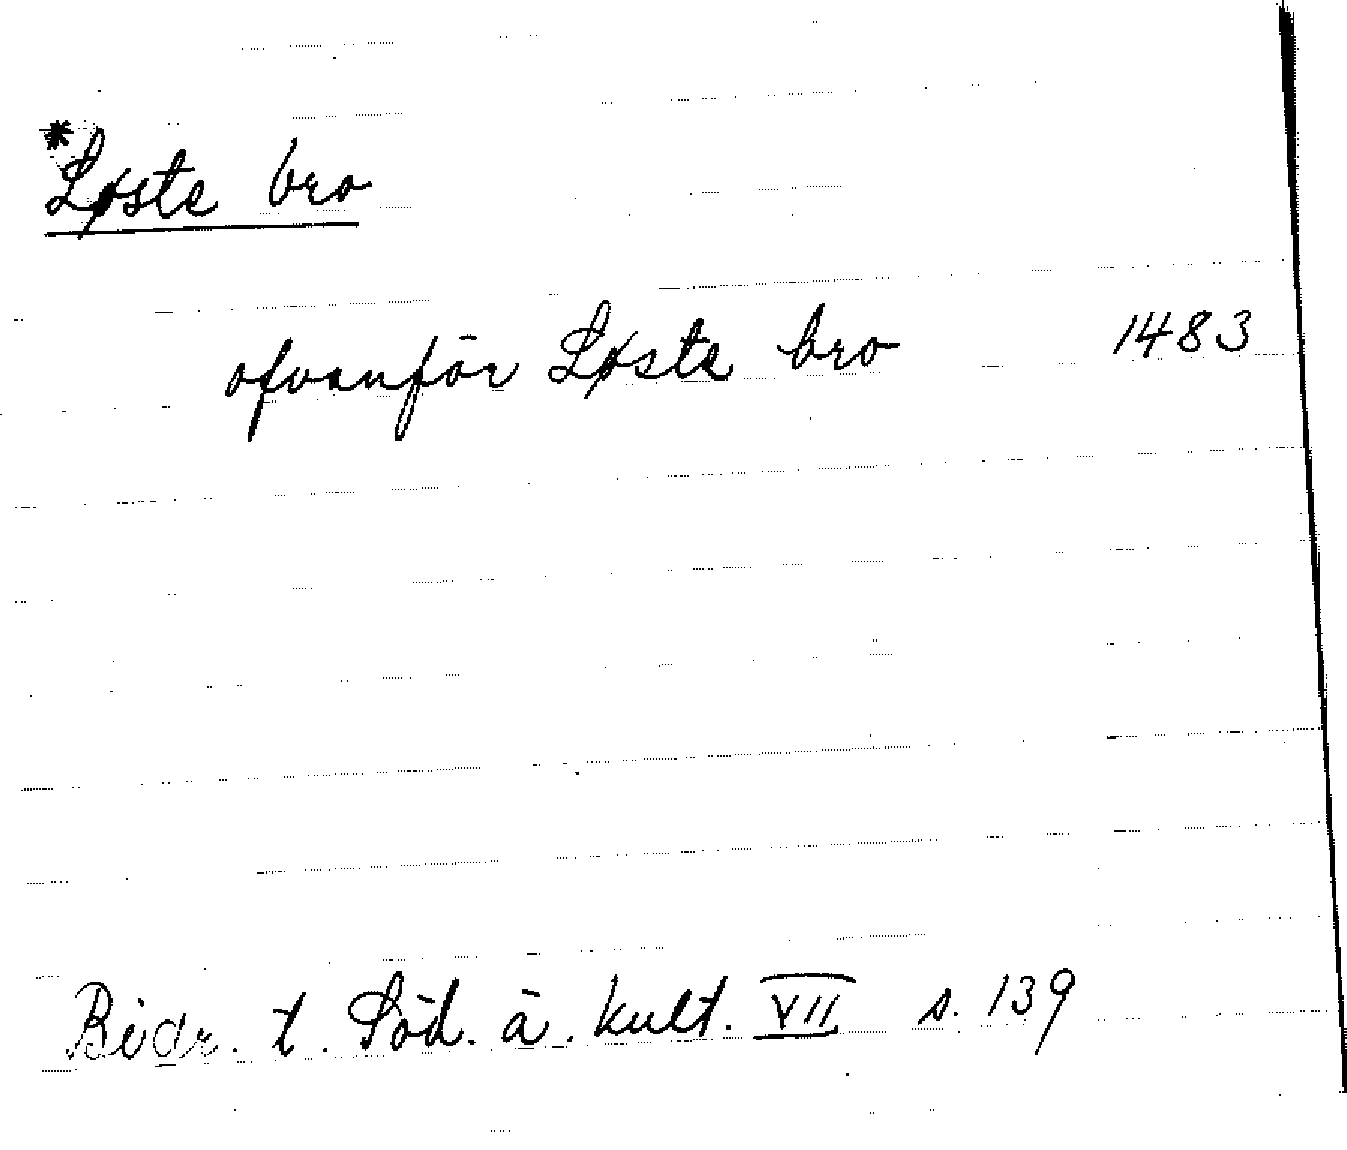 *Løste bro
ofvanför Løste bro 1483
Bidr. t. Söd. ä. kult. VII s. 139